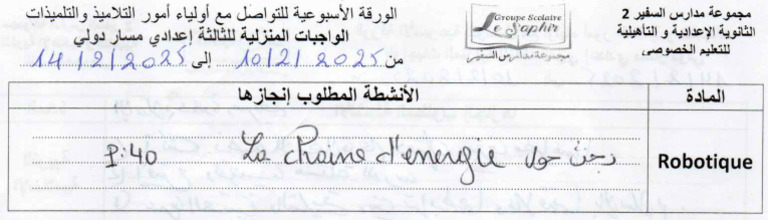 مجموعة مدارس السفير 2
الثانوية الإعدادية و التأهيلية
للتعليم الخصوصي
Groupe Scolaire
Le Saphir
مجموعة مدارس السفير
الورقة الأسبوعية للتواصل مع أولياء أمور التلاميذ والتلميذات
الواجبات المنزلية للثالثة إعدادي مسار دولي
من 10/2/2025 إلى 14/2/2025
المادة
الأنشطة المطلوب إنجازها
Robotique
حول La chaine d'energie P:40